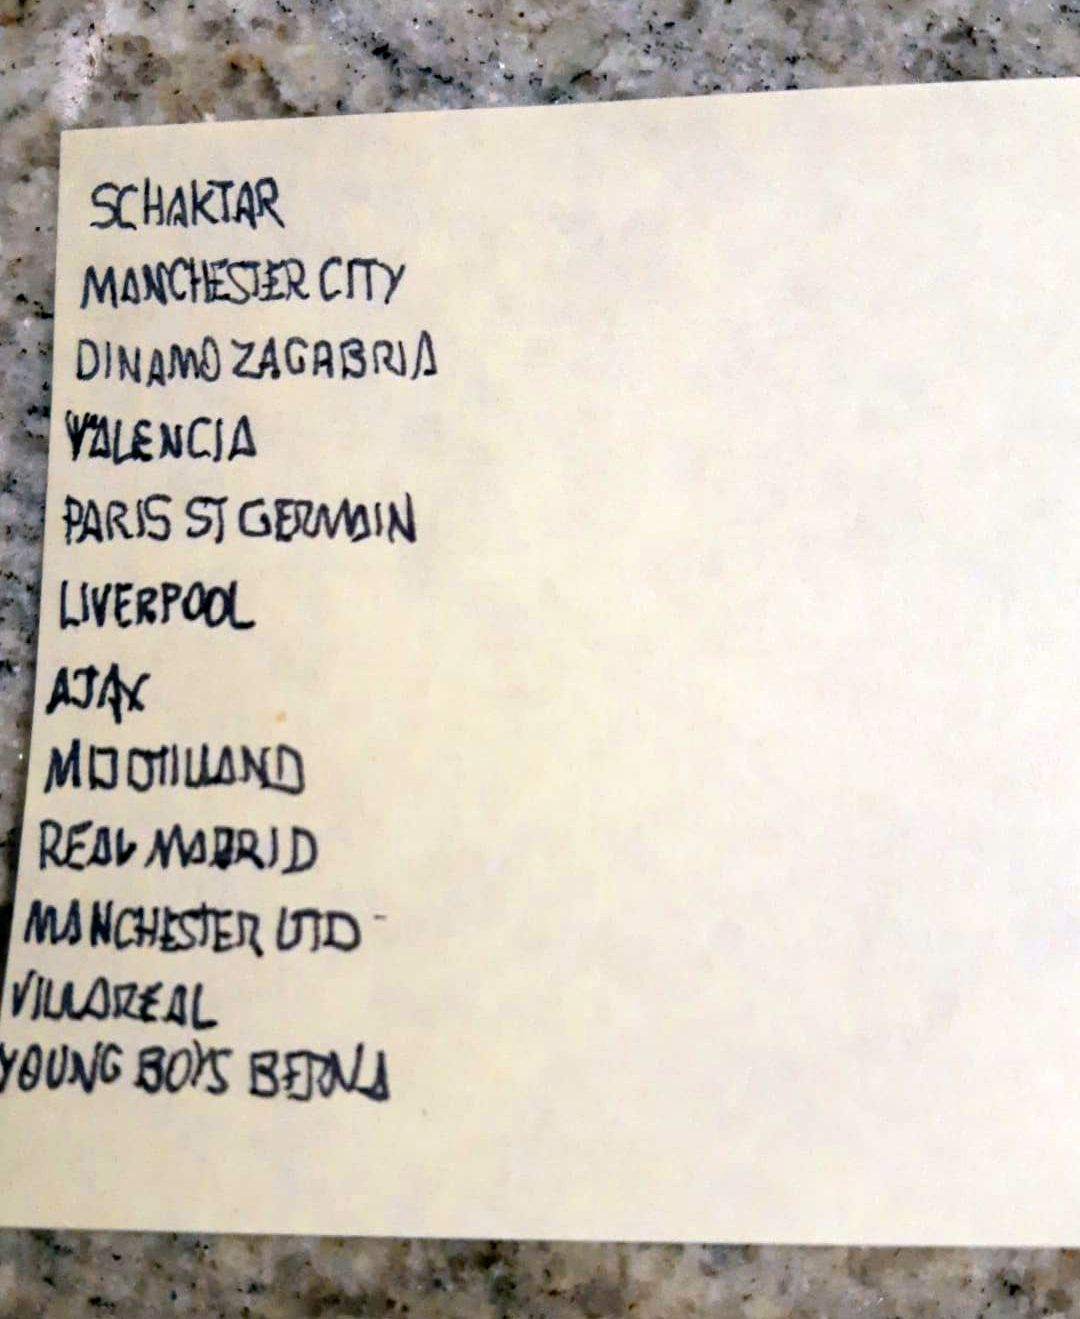 SCHAKTAR
MANCHESTER CITY
DINAMO ZAGABRIA
VALENCIA
PARIS ST GERMAIN
LIVERPOOL
AJAX
MIDJTILLAND
REAL MADRID
MANCHESTER UTD
VILLAREAL
YOUNG BOYS BERNA